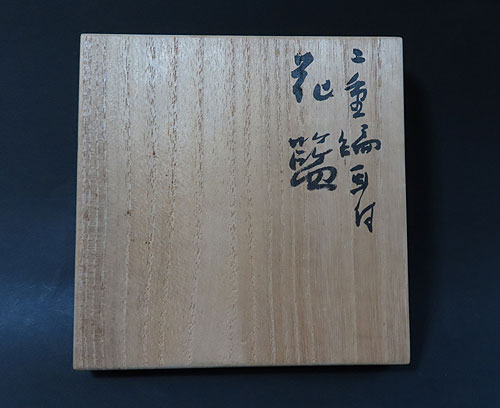 二重編耳付
花籃